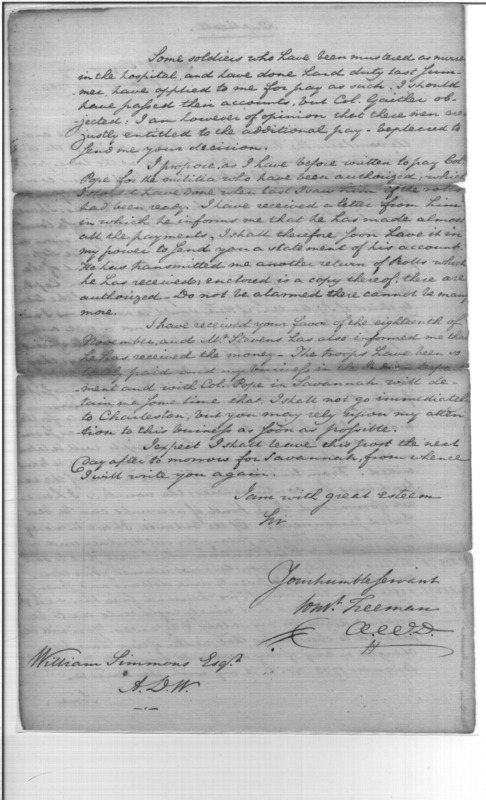 Some soldiers who have been mustered as nurses
in the hospital, and have done hard duty last Sum-
mer, have applied to me for pay as such. I should
have passed their accounts, but Col. Gaither ob-
jected. I am however of opinion that these men are
justly entitled to the additional pay. Be pleased to
send me your decision.
I propose, as I have before written to pay Col.
Pope for the militia who have been authorized, which
I should have done when last I saw him if the rolls
had been ready. I have received a letter from him
in which he informs me that he has made almost
all the payments, I shall therefore soon have it in
my power to send you a statement of his account.
He has transmitted me another return of Rolls which
he has received; enclosed is a copy thereof, these are
authorized. Do not be alarmed there cannot be many
more.
I have received your favor of the eighteenth of
November, and Mr. Stevens has also informed me that
he has received the money. The troops have been
paid and my business in
ment and with Col. Pope in Savannah will de-
tain me some time that I shall not go immediately
to Charleston, but you may rely upon my atten
tion to this business as soon as possible.
I expect I shall leave this post the next
day after to morrow for Savannah, from whence
I will write you again.
I am with great esteem
Sir
Your humble servant
Const. Freeman
A.W.D.
William Simmons Esqr.
A.D.W.